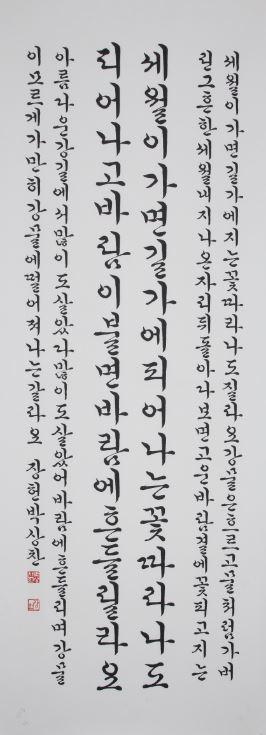 세월이가면길가에피어나는꽃따라나도
피어나고바람이불면바람에흔들릴라오
세월이가면길가에지는꽃따라나도질라오강물은흐르고물처럼가버
린그흔한세월내지나온자리뒤돌아다보면고운바람결에꽃피고지는
아름다운강길에서많이도살았다많이도살았어바람에흔들리며강물
이모르게가만히강물에떨어져나는갈라오 장헌박상찬